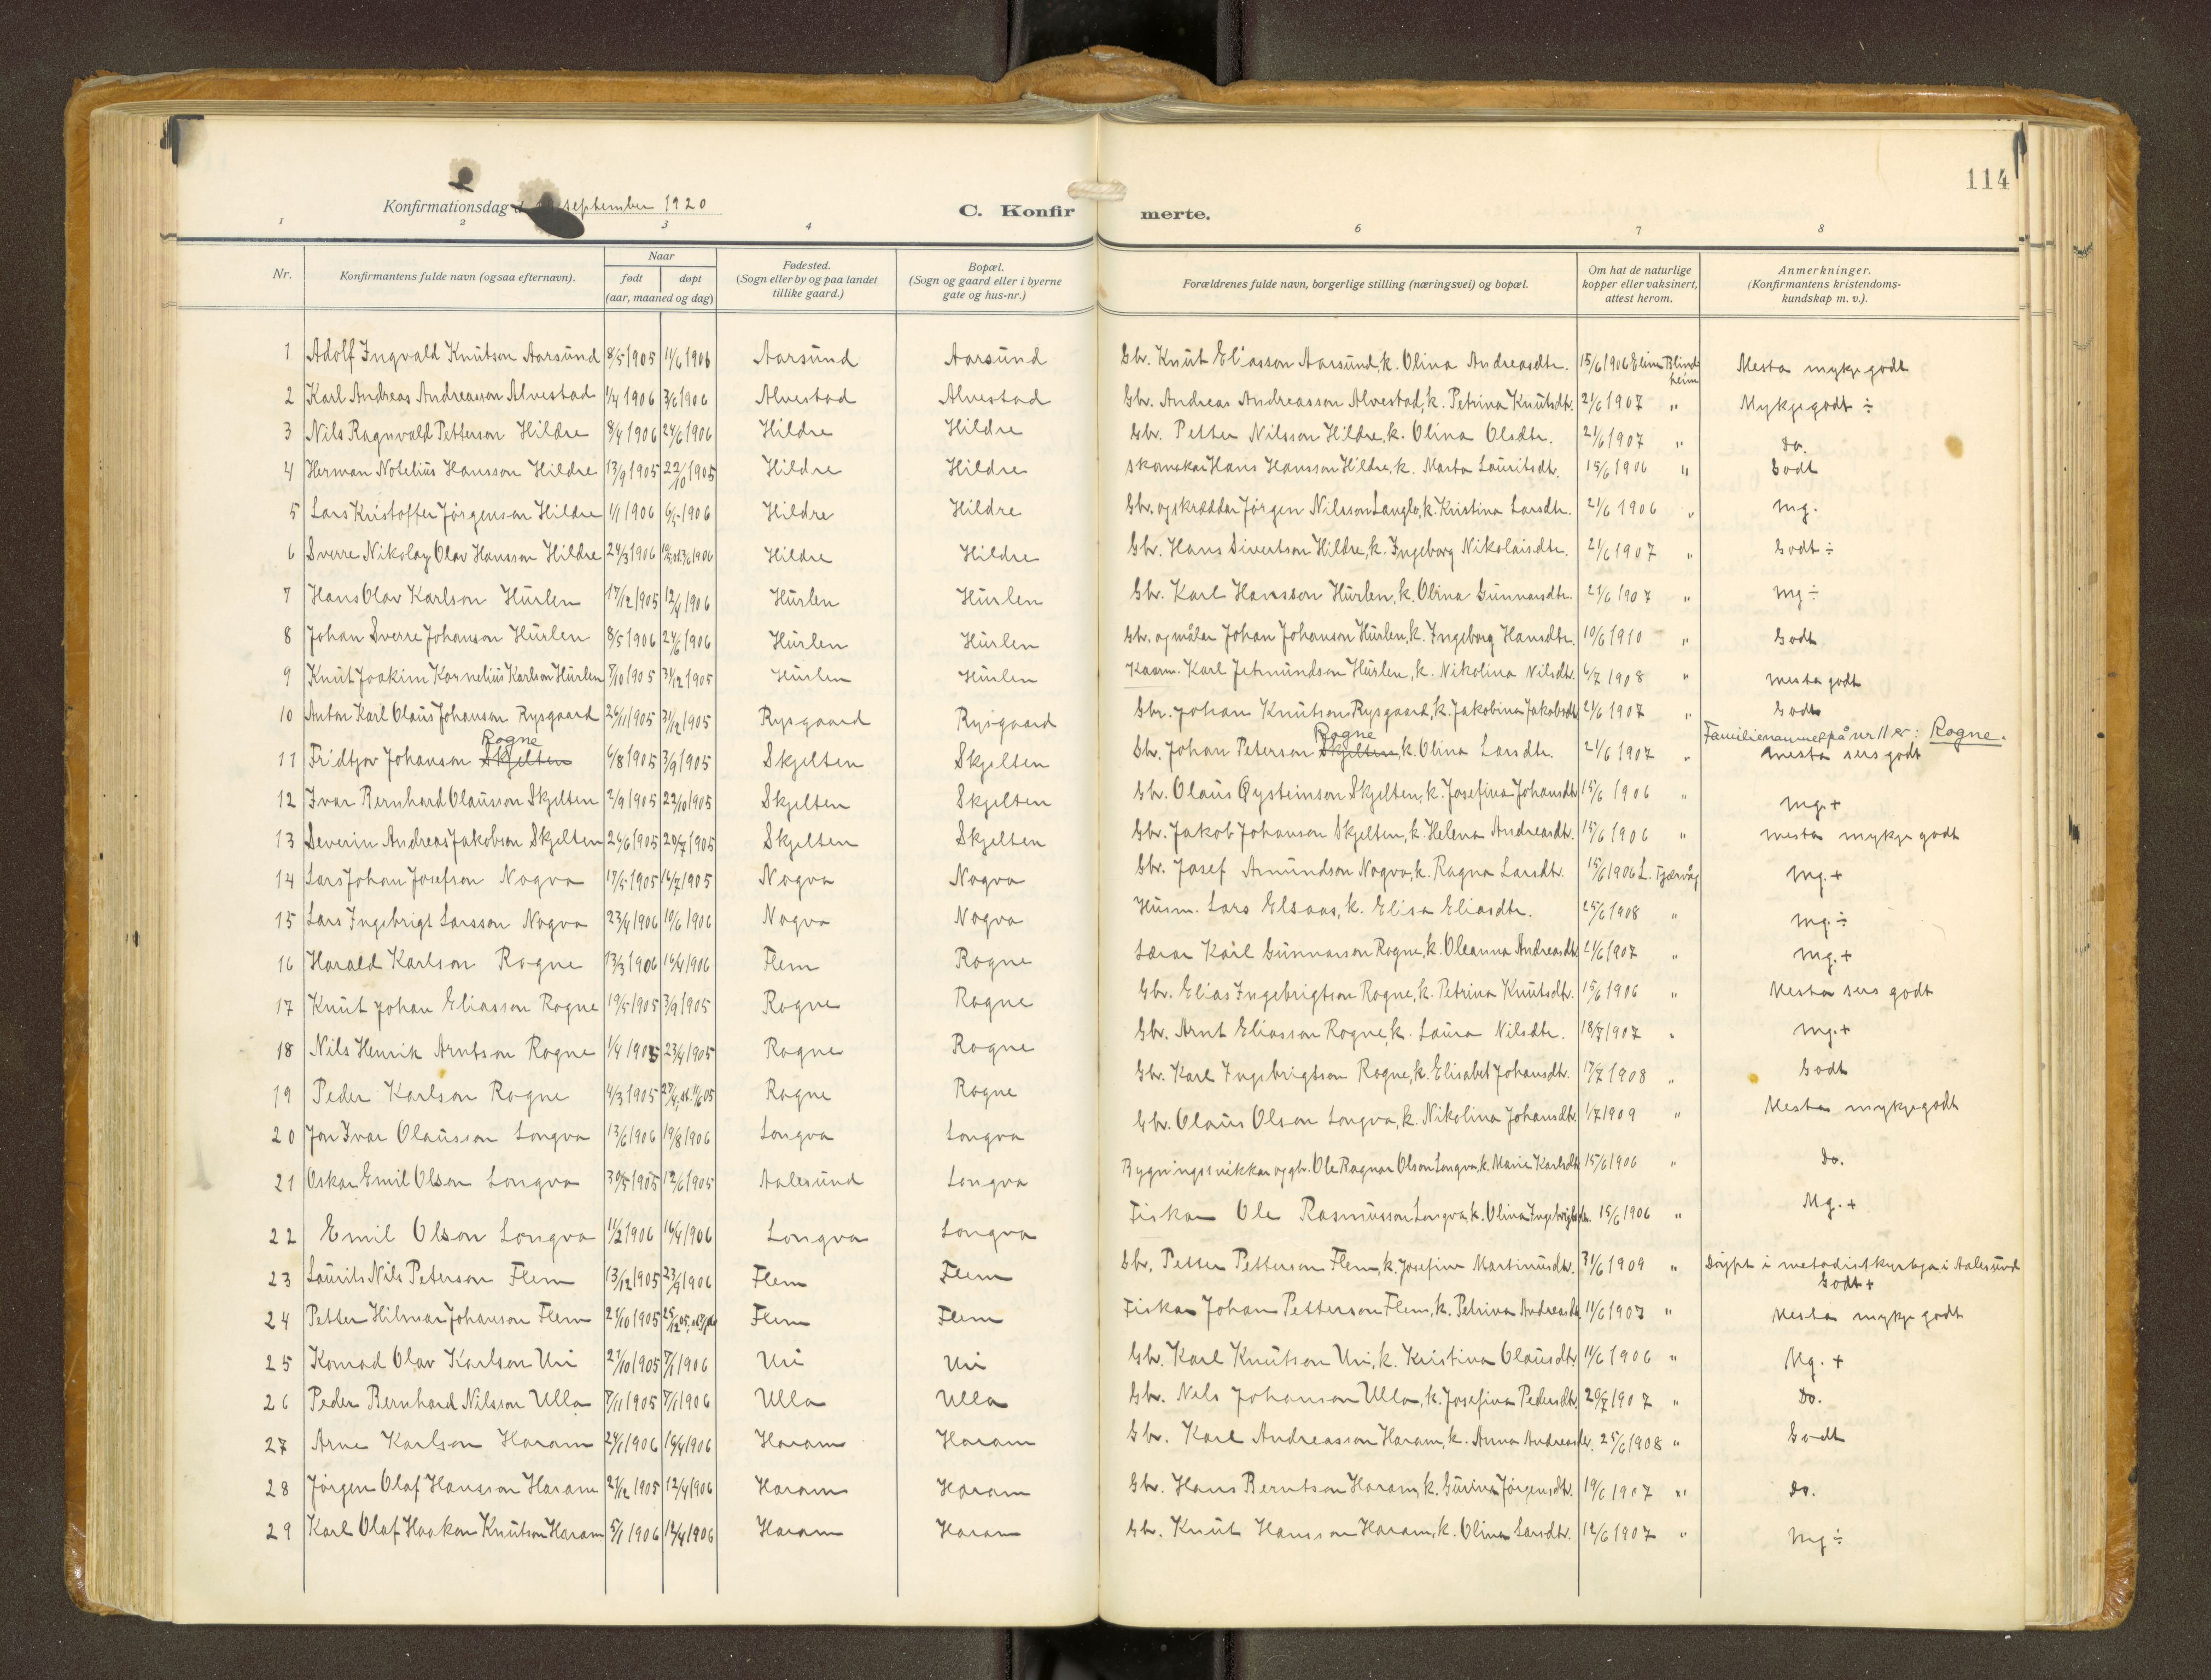 114
Konfirmationsdag september 1920
C. Konfir merte.
1 2 3 4 6 7 8
Nr.
Konfirmantens fulde navn (ogsaa efternavn).
Naar
født døpt
(aar, maaned og dag)
Fødested.
(Sogn eller by og paa landet
tillike gaard.)
Bopæl.
(Sogn og gaard eller i byerne
gate og hus-nr.)
Forældrenes fulde navn, borgerlige stilling (næringsvei) og bopæl.
Om hat de naturlige
kopper eller vaksinert,
attest herom.
Anmerkninger.
(Konfirmantens kristendoms-
kundskap m. v.).
1 Adolf Ingvald Knutson Aarsund 8/5 1905 11/6 1906 Aarsund Aarsund Gbr. Knut Eliasson Aarsund, k. Olina Andreasdtr. 15/6 1906 Elina Blindheim Mesta mykje godt
2 Karl Andreas Andreasson Alvestad 1/4 1906 3/6 1906 Alvestad Alvestad Gbr. Andreas Andreasson Alvestad, k. Petrina Knutsdtr. 21/6 1907 " Mykje godt ÷
3 Nils Ragnvald Petterson Hildre 8/4 1906 24/6 1906 Hildre Hildre Gbr. Petter Nilsson Hildre, k. Olina Olsdtr. 21/6 1907 " Do.
4 Herman Notelius Hansson Hildre 13/9 1905 22/10 1905 Hildre Hildre Skomakar Hans Hansson Hildre, k. Marta Lauritsdtr. 15/6 1906 " Godt
5 Lars Kristoffer Jørgenson Hildre 1/1 1906 6/5 1906 Hildre Hildre Gbr. og skræddar Jørgen Nilsson Langlo, k. Kristina Larsdtr. 21/6 1906 " Mg.
6 Sverre Nikolay Olav Hansson Hildre 24/3 1906 Hildre Hildre Gbr. Hans Sivertson Hildre, k. Ingeborg Nikolaisdtr. 21/6 1907 " Godt ÷
7 Hans Olav Karlson Hurlen 17/12 1905 12/4 1906 Hurlen Hurlen Gbr. Karl Hansson Hurlen, k. Olina Gunnarsdtr. 21/6 1907 " Mg ÷
8 Johan Sverre Johanson Hurlen 8/5 1906 24/6 1906 Hurlen Hurlen Gbr. og målar Johan Johanson Hurlen, k. Ingeborg Hansdtr. 10/6 1910 " Godt
9 Knut Joakim Kornelius Karlson Hurlen 8/10 1905 31/12 1905 Hurlen Hurlen Kaarm. Karl Jetmundson Hurlen, k. Nikolina Nilsdtr. 6/7 1908 " Mesta godt
10 Anton Karl Olaus Johanson Rysgaard 26/11 1905 31/12 1905 Rysgaard Rysgaard Gbr. Johan Knutson Rysgaard, k. Jakobina Jakobsdtr. 21/6 1907 " Godt
Familienamnet på nr 11 er: Rogne.
11 Fridtjov Johanson Skjelten Rogne 6/8 1905 3/9 1905 Skjelten Skjelten Gbr. Johan Peterson Skjelten Rogne, k. Olina Larsdtr. 21/6 1907 " Mesta sers godt
12 Ivar Bernhard Olausson Skjelten 2/9 1905 22/10 1905 Skjelten Skjelten Gbr. Olaus Øysteinson Skjelten, k. Josefina Johansdtr. 15/6 1906 " Mg. +
13 Severin Andreas Jakobson Skjelten 24/6 1905 20/7 1905 Skjelten Skjelten Gbr. Jakob Johanson Skjelten, k. Helena Andreasdtr. 15/6 1906 " Mesta mykje godt
14 Lars Johan Josefson Nogva 17/5 1905 16/7 1905 Nogva Nogva Gbr. Josef Amundson Nogva, k. Ragna Larsdtr. 15/6 1906 L. Tjærvåg Mg. +
15 Lars Ingebrigt Larsson Nogva 23/4 1906 10/6 1906 Nogva Nogva Husm. Lars Elsaas, k. Elisa Eliasdtr. 25/6 1908 " Mg. ÷
16 Harald Karlson Rogne 13/3 1906 16/4 1906 Flem Rogne Lærar Karl Gunnarson Rogne, k. Oleanna Andreasdtr. 21/6 1907 " Mg. +
17 Knut Johan Eliasson Rogne 19/5 1905 3/9 1905 Rogne Rogne Gbr. Elias Ingebrigtson Rogne, k. Petrina Knutsdtr. 15/6 1906 " Mesta sers godt
18 Nils Henrik Arntson Rogne 1/4 1905 23/4 1905 Rogne Rogne Gbr. Arnt Eliasson Rogne, k. Laura Nilsdtr. 18/7 1907 " Mg. +
19 Peder Karlson Rogne 4/3 1905 Rogne Rogne Gbr. Karl Ingebrigtson Rogne, k. Elisabet Johansdtr. 17/7 1908 " Godt
20 Jon Ivar Olausson Longva 13/6 1906 19/8 1906 Longva Longva Gbr. Olaus Olson Longva, k. Nikolina Johansdtr. 1/7 1909 " Mesta mykje godt
21 Oskar Emil Olson Longva 30/5 1905 12/6 1905 Aalesund Longva Bygningssnikkar og gbr. Ole Ragnar Olson Longva, k. Marie Karlsdtr. 15/6 1906 " Do.
22 Emil Olson Longva 11/2 1906 16/4 1906 Longva Longva Fiskar Ole Rasmusson Longva, k. Olina Ingebrigtsdtr. 15/6 1906 " Mg. +
23 Laurits Nils Peterson Flem 13/12 1905 23/9 1906 Flem Flem Gbr. Petter Petterson Flem, k. Josefine Martinusdtr. 31/6 1909 " Døypt i metodistkyrkja i Aalesund
Godt +
24 Petter Hilmar Johanson Flem 21/10 1905 Flem Flem Fiskar Johan Petterson Flem, k. Petrina Andreasdtr. 11/6 1907 " Mesta mykje godt
25 Konrad Olav Karlson Uri 27/10 1905 7/1 1906 Uri Uri Gbr. Karl Knutson Uri, k. Kristina Olausdtr. 11/6 1906 " Mg. +
26 Peder Bernhard Nilsson Ulla 7/11 1905 7/1 1906 Ulla Ulla Gbr. Nils Johanson Ulla, k. Josefina Pedersdtr. 20/7 1907 " Do.
27 Arne Karlson Haram 24/1 1906 16/4 1906 Haram Haram Gbr. Karl Andreasson Haram, k. Anna Andreasdtr. 25/6 1908 " Godt
28 Jørgen Olaf Hansson Haram 21/12 1905 12/4 1906 Haram Haram Gbr. Hans Berntson Haram, k. Gurina Jørgensdtr. 19/6 1907 " Do.
29 Karl Olaf Haakon Knutson Haram 5/1 1906 12/4 1906 Haram Haram Gbr. Knut Hansson Haram, k. Olina Larsdtr. 12/6 1907 " Mg ÷